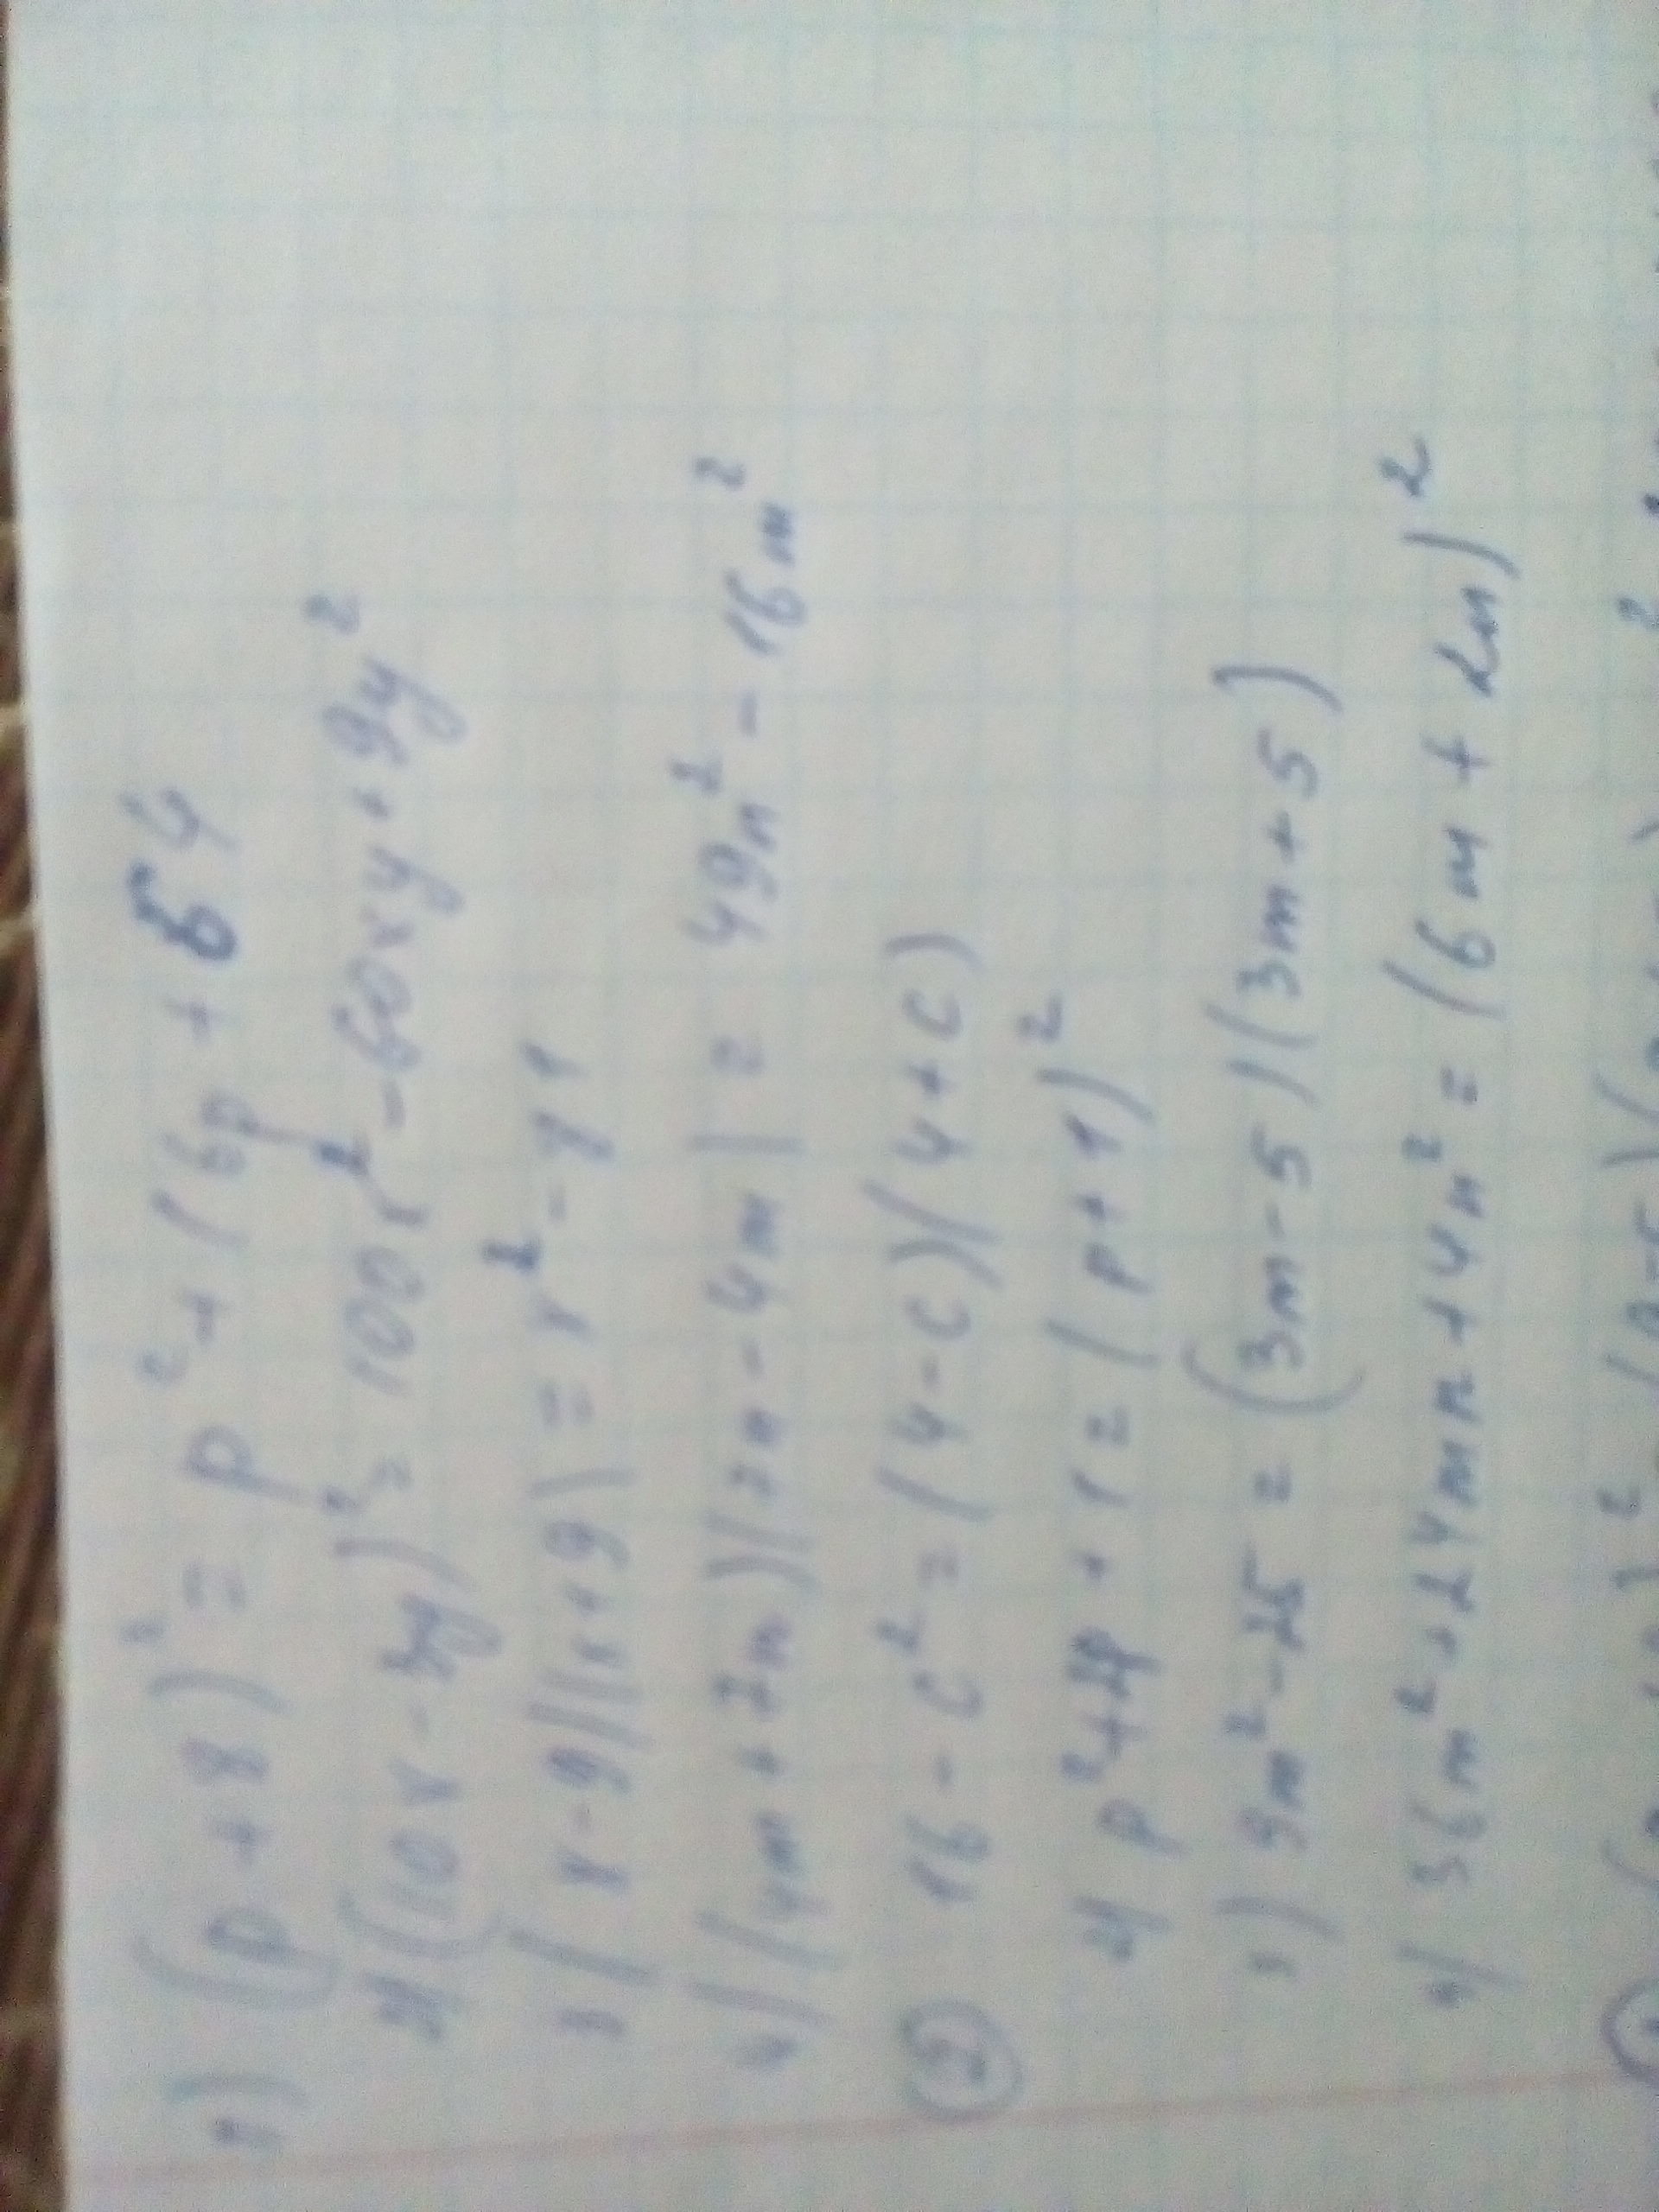 1) (p + 8)² = p² + 16p + 64
2) (10x - 3y)² = 100x² - 60xy + 9y²
3) (x - 9)(x + 9) = x² - 81
4) (4m + 7n)(7n - 4m) = 49n² - 16m²
② 16 - c² = (4 - c)(4 + c)
2) p² + 2p + 1 = (p + 1)²
3) 9m² - 25 = (3m - 5)(3m + 5)
4) 36m² + 24mn + 4n² = (6m + 2n)²